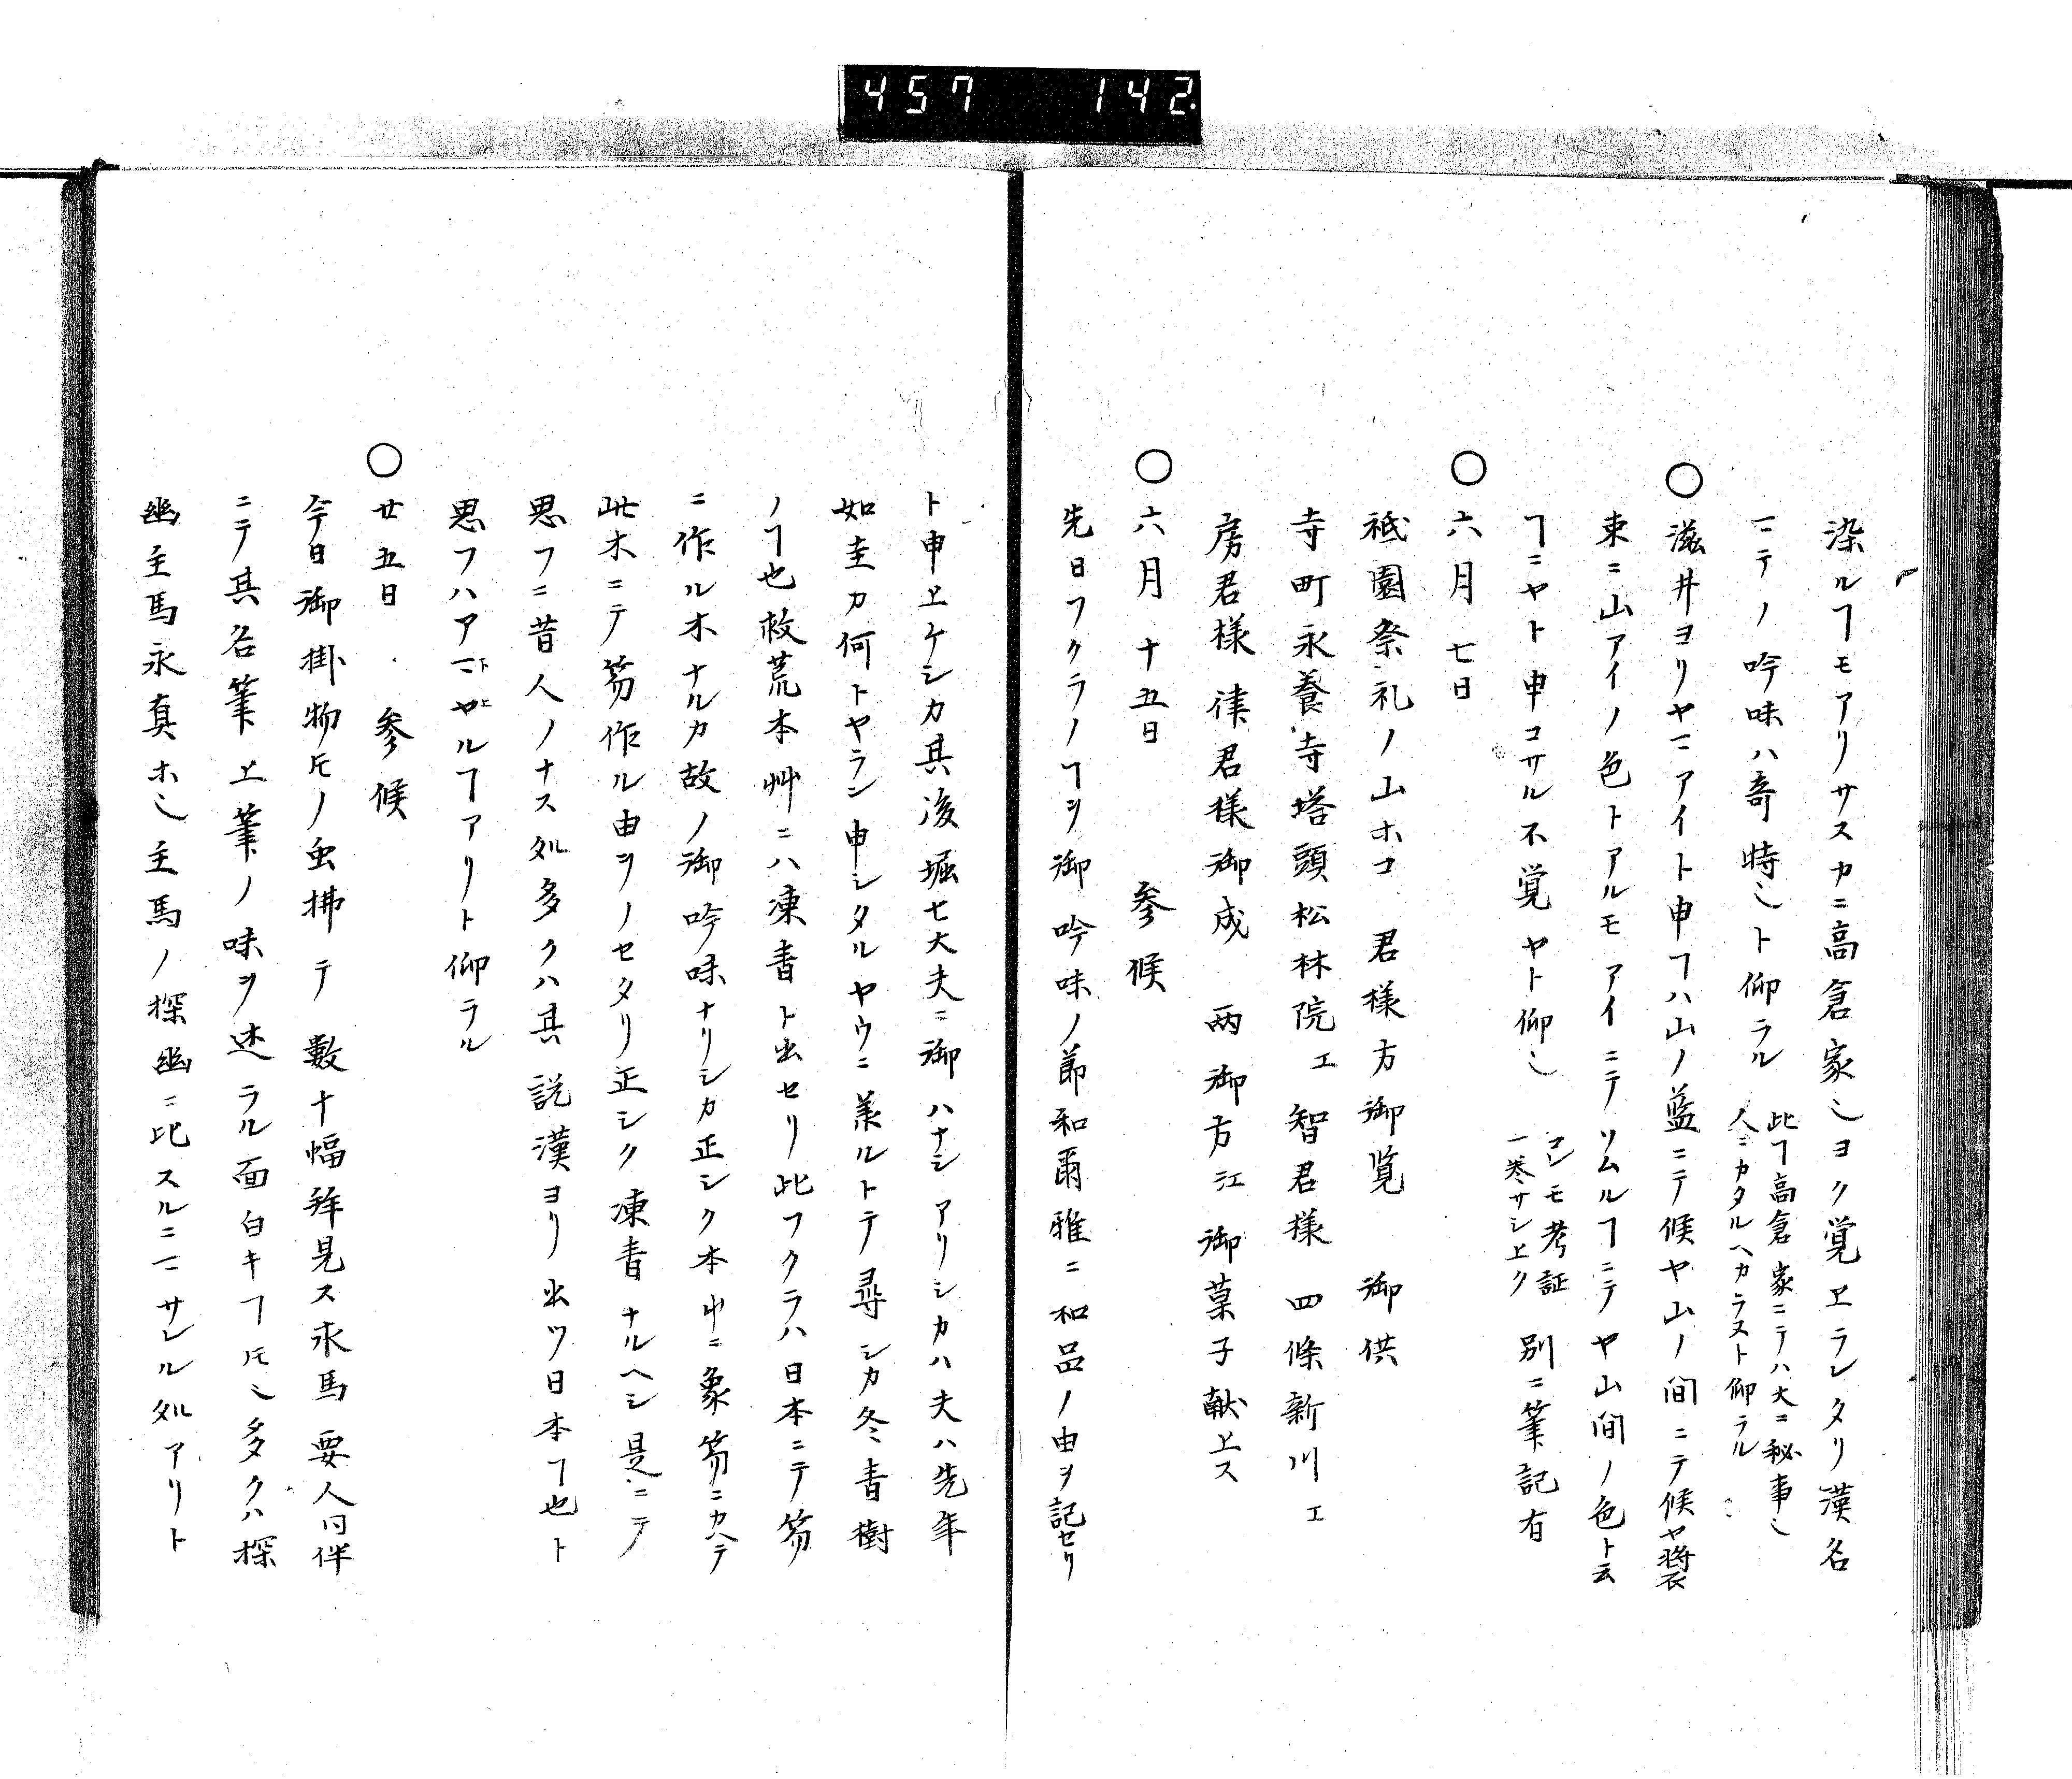 457 142
染ルヿモアリサスカニ高倉家〆ヨク覚ヱラレタリ漢名
ニテノ吟味ハ奇特〆ト仰ラル 此ヿ高倉家ニテハ大ニ秘事〆
人ニカタルヘカラスト仰ラル
○滋井ヨリヤマアイト申ヿハ山ノ藍ニテ候ヤ山ノ間ニテ候ヤ装
束ニ山アイノ色トアルモアイニテソムルヿニテヤ山間ノ色ト云
ヿニヤト申コサル不覚ヤト仰〆 コレモ考証
一巻サシ上ク 別ニ筆記有
○六月七日
祗園祭礼ノ山ホコ 君様方御覧 御供
寺町永養寺塔頭松林院エ智君様 四條新川エ
房君様律君様御成 両御方江御菓子献上ス
○六月十五日 参候
先日フクラノヿヲ御吟味ノ節和爾雅ニ和品ノ由ヲ記セリ
ト申上ケシカ其後堀七大夫ニ御ハナシアリシカハ夫ハ先年
如圭カ何トヤラン申シタルヤウニ羕ルトテ尋シカ冬青樹
ノヿ也救荒本艸ニハ凍青ト出セリ此フクラハ日本ニテ笏
ニ作ル木ナルカ故ノ御吟味ナリシカ正シク本艸ニ象笏ニカヘテ
此木ニテ笏作ル由ヲノセタリ正シク凍青ナルヘシ是ニテ
思フニ昔人ノナス処多クハ其説漢ヨリ出ツ日本ヿ也ト
思フハアマ下ヤ上ルヿアリト仰ラル
○廿五日 参候
今日御掛物𪜈ノ虫拂テ數十幅拜見ス求馬要人同伴
ニテ其名筆上筆ノ味ヲ述ラル面白キヿ𪜈〆多クハ探
幽主馬永真ホ〆主馬ノ探幽ニ比スルニマサレル処アリト